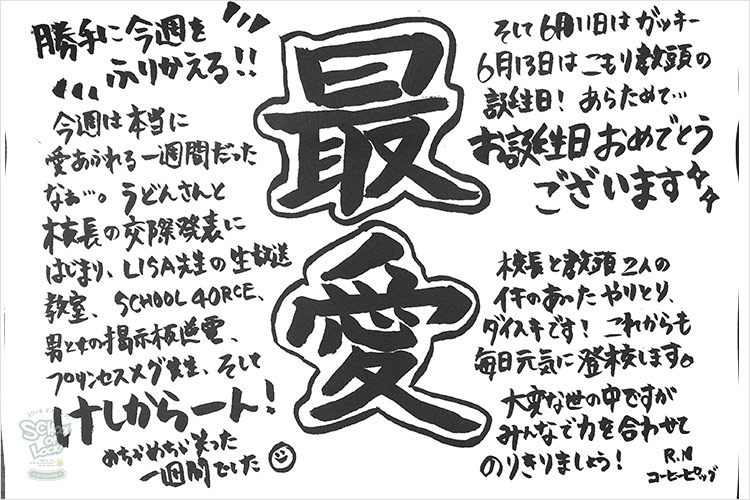 勝手に今週を
ふりかえる!!
今週は本当に
愛あふれる一週間だった
なぁ…。うどんさんと
校長の交際発表に
はじまり、LISA先生の生放送
教室、SCHOOL 4ORCE、
男と女の掲示板逆電、
プリンセスメグ先生、そして
けしからーん!
めちゃめちゃ笑った
一週間でした
最
愛
そして6月11日はガッキー
6月13日はこもり教頭の
誕生日! あらためて…
お誕生日おめでとう
ございます
校長と教頭2人の
イキのあったやりとり、
ダイスキです! これからも
毎日元気に登校します。
大変な世の中ですが
みんなで力を合わせて
のりきりましょう!
R.N
コーヒーピッグ
SCHOOL
OF
LOCK!